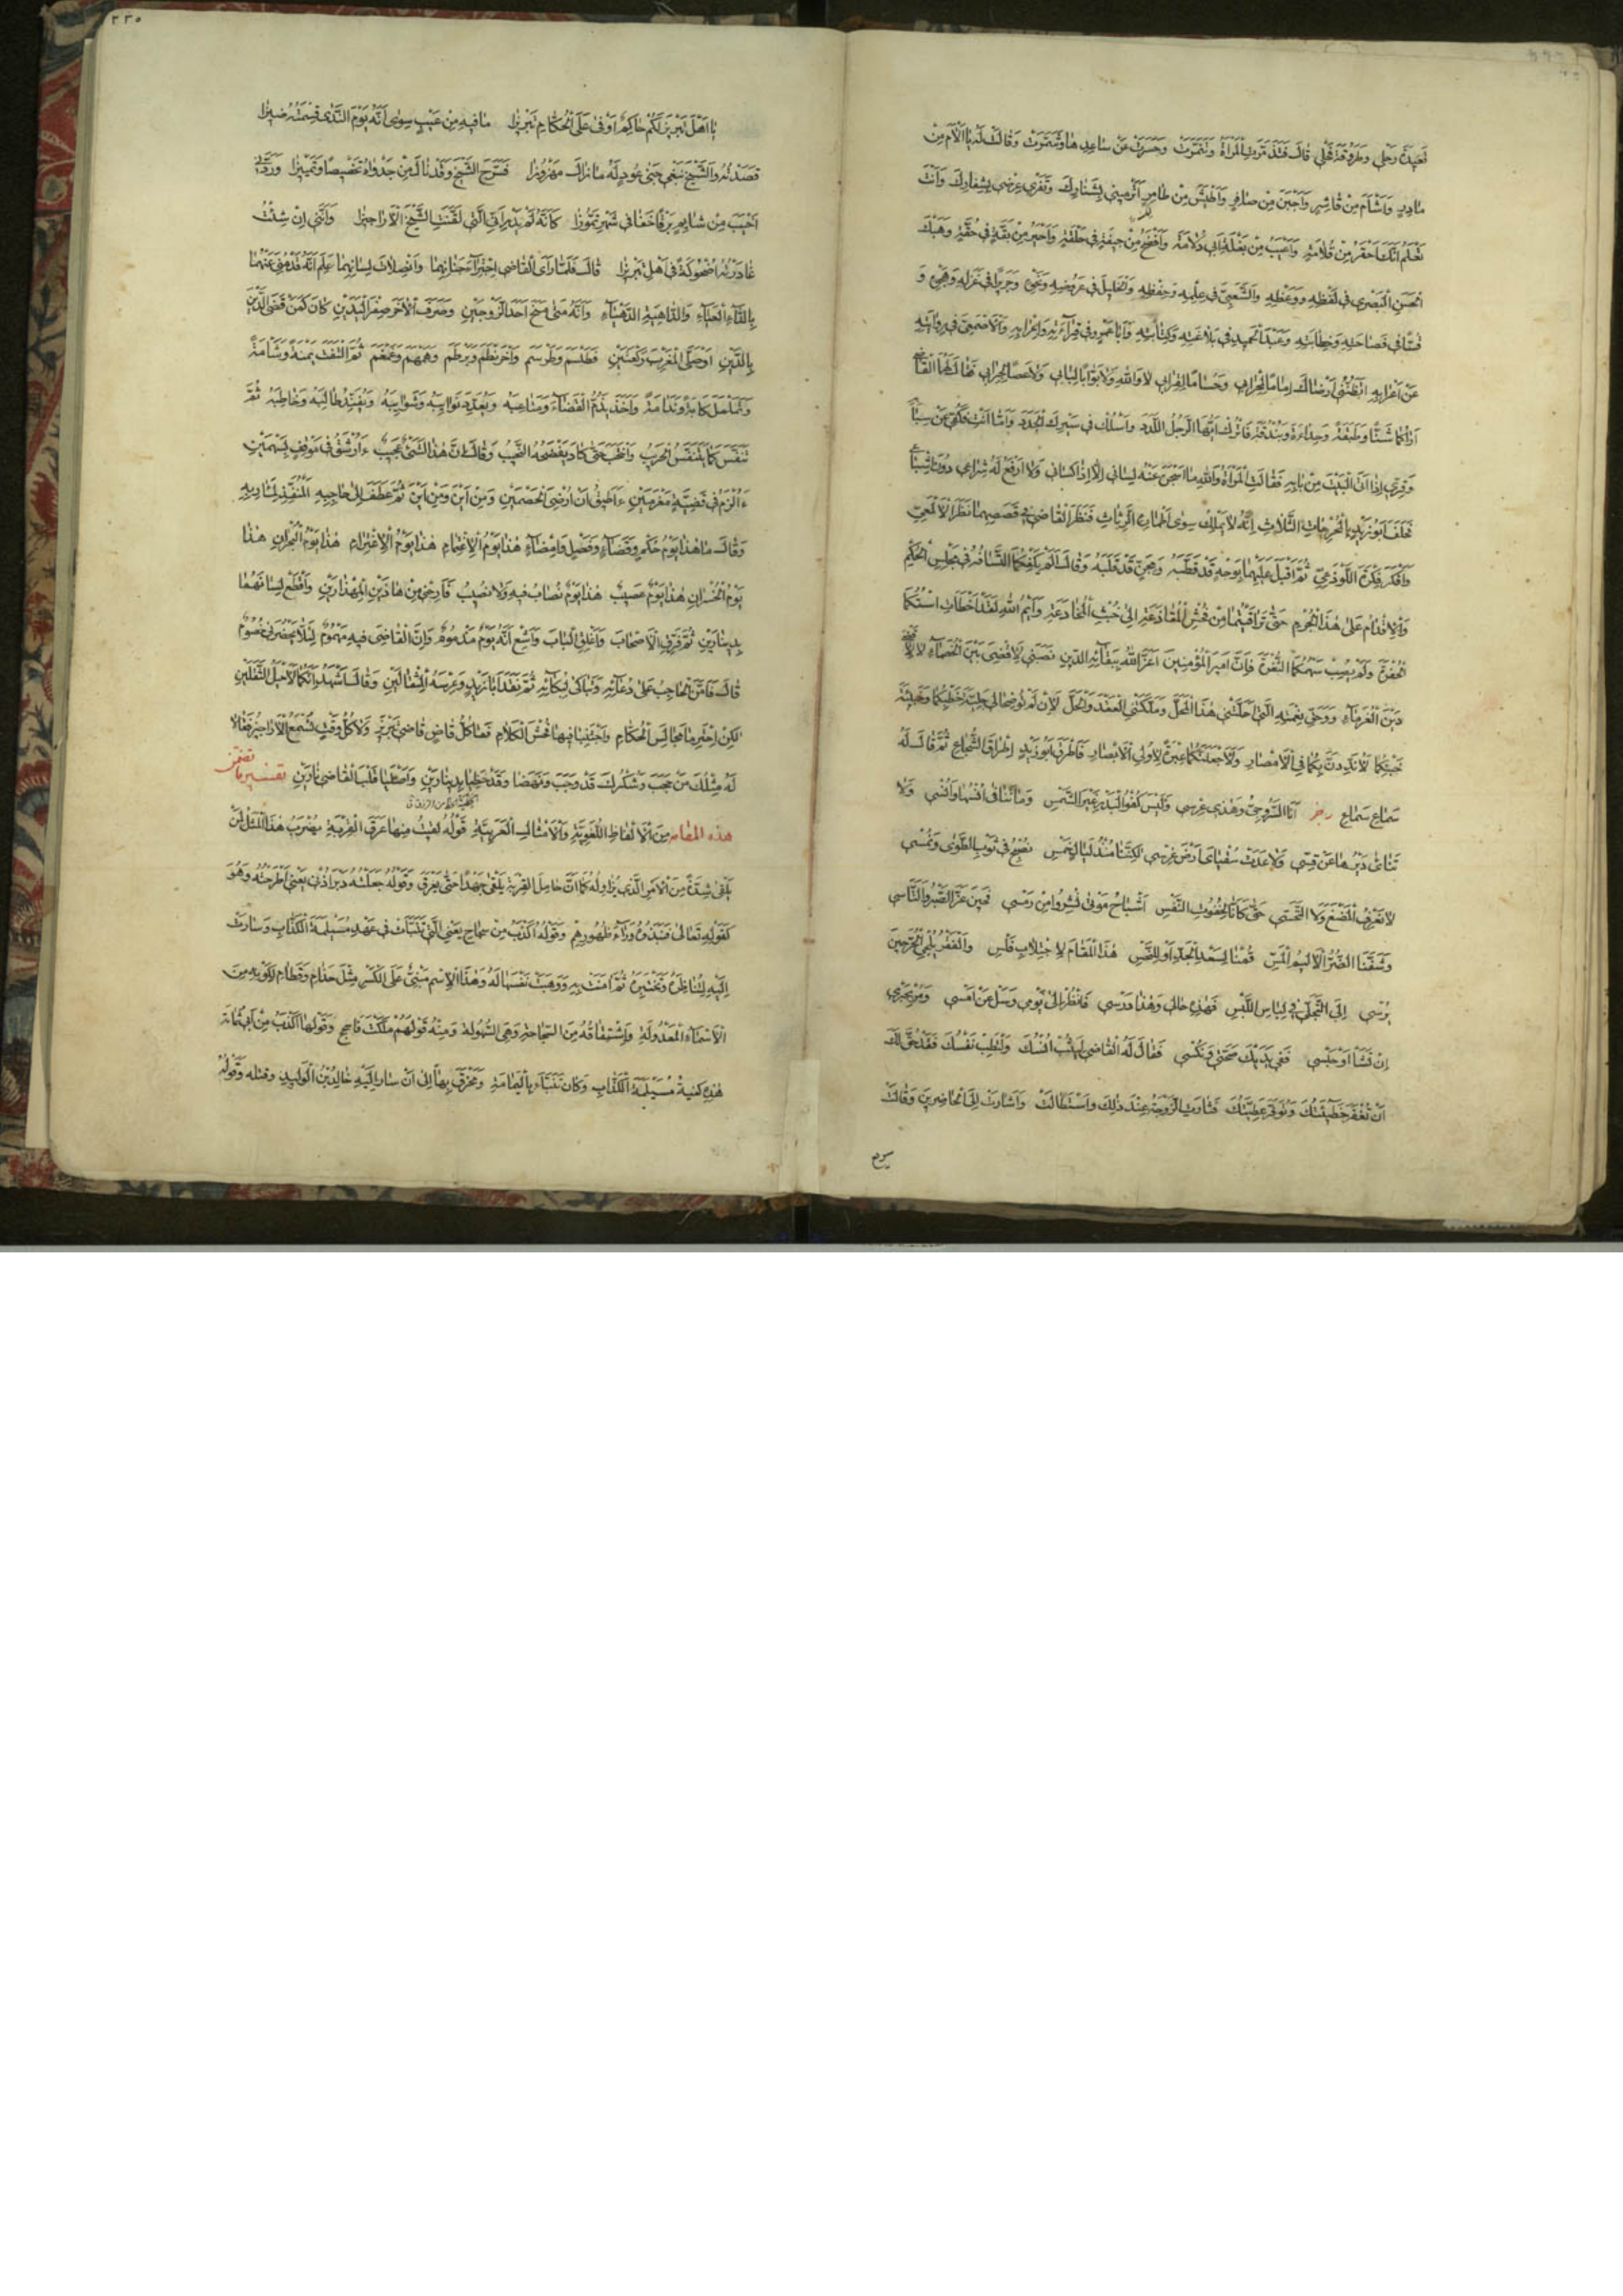 قعيدة رحلى وطروقة فحلى قال فتذمرت المرأة وتنمرت وحسرت عن ساعدها وشمرت وقالت له يا الأم من
مادر واشأم من قاشر واجبن من صافر واطيش من طامر اترمينى بشنارك وتفرى عرضى بشفارك وانت
تعلم انك احقر من قلامة واعيب من بغلة ابى دلامة وافضح من حبقة فى حلقة واحير من بقة فى حقة وهبك
الحسن البصرى فى لفظه ووعظه والشعبى فى علمه وحفظه والخليل فى عروضه ونحوه وجريرا فى غزله وهجوه و
قسا فى فصاحته وخطابته وعبد الحميد فى بلاغته وكتابته وابا عمرو فى قراءته واعرابه والاصمعى فى روايته
عن اعرابه اتظننى ارضاك اماما لمحرابى وحساما لقرابى لا والله ولا بوابا لبابى ولا عصا لجرابى فقال لهما القاضى
اراكما شنا وطبقة وحداءة وبندقة فاترك ايها الرجل اللدد واسلك فى سيرك الجدد واما انت فكفى عن سبابه
وقرى اذا اتى البيت من بابه فقالت المرأة والله ما اسجن عنه لسانى الا اذا كسانى ولا ارفع له شراعى دون اشباعى
فحلف ابو زيد بالمحرجات الثلاث انه لا يملك سوى اطماره الرثاث فنظر القاضى فى قصصهما نظر الالمعى
وافكر فكرة اللوذعى ثم اقبل عليهما بوجه قد قطبه ومجن قد قلبه وقال الم يكفكما التسافه فى مجلس الحكم
والاقدام على هذا الجرم حتى تراقيتما من فحش المقاذعة الى خبث المخادعة وايم الله لقد اخطأت استكما
الحفرة ولم يصب سهمكما الثغرة فان امير المؤمنين اعز الله ببقائه الدين نصبنى لاقضى بين الخصماء لا لاقضى
دين الغرماء ووحق نعمته التى احلتنى هذا المحل وملكتنى العقد والحل لئن لم توضحا لى جلية خطبكما وخبيئة
خبكما لاندّدن بكما فى الامصار ولاجعلنكما عبرة لاولى الابصار فاطرق ابو زيد اطراق الشجاع ثم قال له
سماع سماع رجز انا السروجى وهذى عرسى وليس كفو البدر غير الشمس وما تنافى انسها وانسى ولا
تنائى ديرها عن قسى ولا عدت سقياى ارض غرسى لكننا منذ ليال خمس نصبح فى ثوب الطوى ونمسى
لا نعرف المضغ ولا التحسى حتى كأنا لخفوت النفس اشباح موتى نشروا من رمس فحين عز الصبر والتأسى
وشفنا الضر الاليم المس قمنا لسعد الجد او للنحس هذا المقام لاجتلاب فلس والفقر يلجى الحر حين
يرسى الى التجلى فى لباس اللبس فهذه حالى وهذا درسى فانظر الى يومى وسل عن امسى ومر بجبرى
ان تشأ او حبسى ففى يديك صحتى ونكسى فقال له القاضى ليثب انسك ولتطب نفسك فقد حق لك
ان تغفر خطيئتك وتوفر عطيتك فثارت الزوجة عند ذلك واستطالت واشارت الى الحاضرين وقالت
٢٣٥
يا اهل تبريز لكم حاكم اوفى على الحكام تبريزا ما فيه من عيب سوى انه يوم الندى قسمته ضيزى
قصدته والشيخ نبغى جنى عود له ما زال مهزوزا فسرح الشيخ وقد نال من جدواه تخصيصا وتمييزا وردنى
اخيب من شايم برقا خفا فى شهر تموزا كأنه لم يدر انى التى لقنت الشيخ الاراجيزا وانى ان شئت
غادرته اضحوكة فى اهل تبريزا قال فلما رأى القاضى اجتراء جنانهما وانصلات لسانهما علم انه قد منى منهما
بالداء العياء والداهية الدهياء وانه متى منح احد الزوجين وصرف الآخر صفر اليدين كان كمن قضى الدين
بالدين او صلى المغرب ركعتين فطلسم وطرسم واخرنطم وبرطم وهمهم وغمغم ثم التفت يمنة وشأمة
وتململ كآبة وندامة واخذ يذم القضاء ومتاعبه ويعدد نوائبه وشوائبه ويفند طالبه وخاطبه ثم
تنفس كما يتنفس الحريب وانتحب حتى كاد يفضحه النحيب وقال ان هذا لشىء عجيب ءارشق فى موقف بسهمين
ءالزم فى قضية بمغرمين ءاطيق ان ارضى الخصمين ومن اين ومن اين ثم عطف الى حاجبه المنفذ لمآربه
وقال ما هذا يوم حكم وقضاء وفصل وامضاء هذا يوم الاغتمام هذا يوم الاغترام هذا يوم البحران هذا
يوم الخسران هذا يوم عصيب هذا يوم نصاب فيه ولا نصيب فارحنى من هاذين المهذارين واقطع لسانهما
بدينارين ثم فرق الاصحاب واغلق الباب واشع انه يوم مذموم وان القاضى فيه مهموم لئلا يحضرنى خصوم
قال فامن الحاجب على دعائه وتباكى لبكائه ثم نقد ابا زيد وعرسه المثقالين وقال اشهد انكما لاحيل الثقلين
لكن احترما مجالس الحكام واجتنبا فيها فحش الكلام فما كل قاض قاضى تبريز ولا كل وقت تسمع الاراجيز فقالا
له مثلك من حجب وشكرك قد وجب ونهضا وقد حظيا بدينارين واصليا قلب القاضى نارين تفسير ما تضمن
هذه المقامة من الالفاظ اللغوية والامثال العربية قوله لقيت منها عرق القربة يضرب هذا المثل لمن
يلقى شدة من الامر الذى يزاوله كما ان حامل القربة يلقى جهدا حتى يعرق وقوله جعلته دبر اذنى يعنى اطرحته وهو
كقوله تعالى فنبذوه وراء ظهورهم وقوله اكذب من سجاح يعنى التى تنبأت فى عهد مسيلمة الكذاب وسارت
اليه لتناظره وتختبره ثم آمنت به ووهبت نفسها له وهذا الاسم مبنى على الكسر مثل حذام وقطام لكونه من
الاسماء المعدولة واشتقاقه من السجاحة وهى السهولة ومنه قولهم ملكت فاسجح وقولها اكذب من ابى ثمامة
هذه كنية مسيلمة الكذاب وكان تنبأ باليمامة ومخرق بها الى ان سار اليه خالد بن الوليد وقتله وقوله